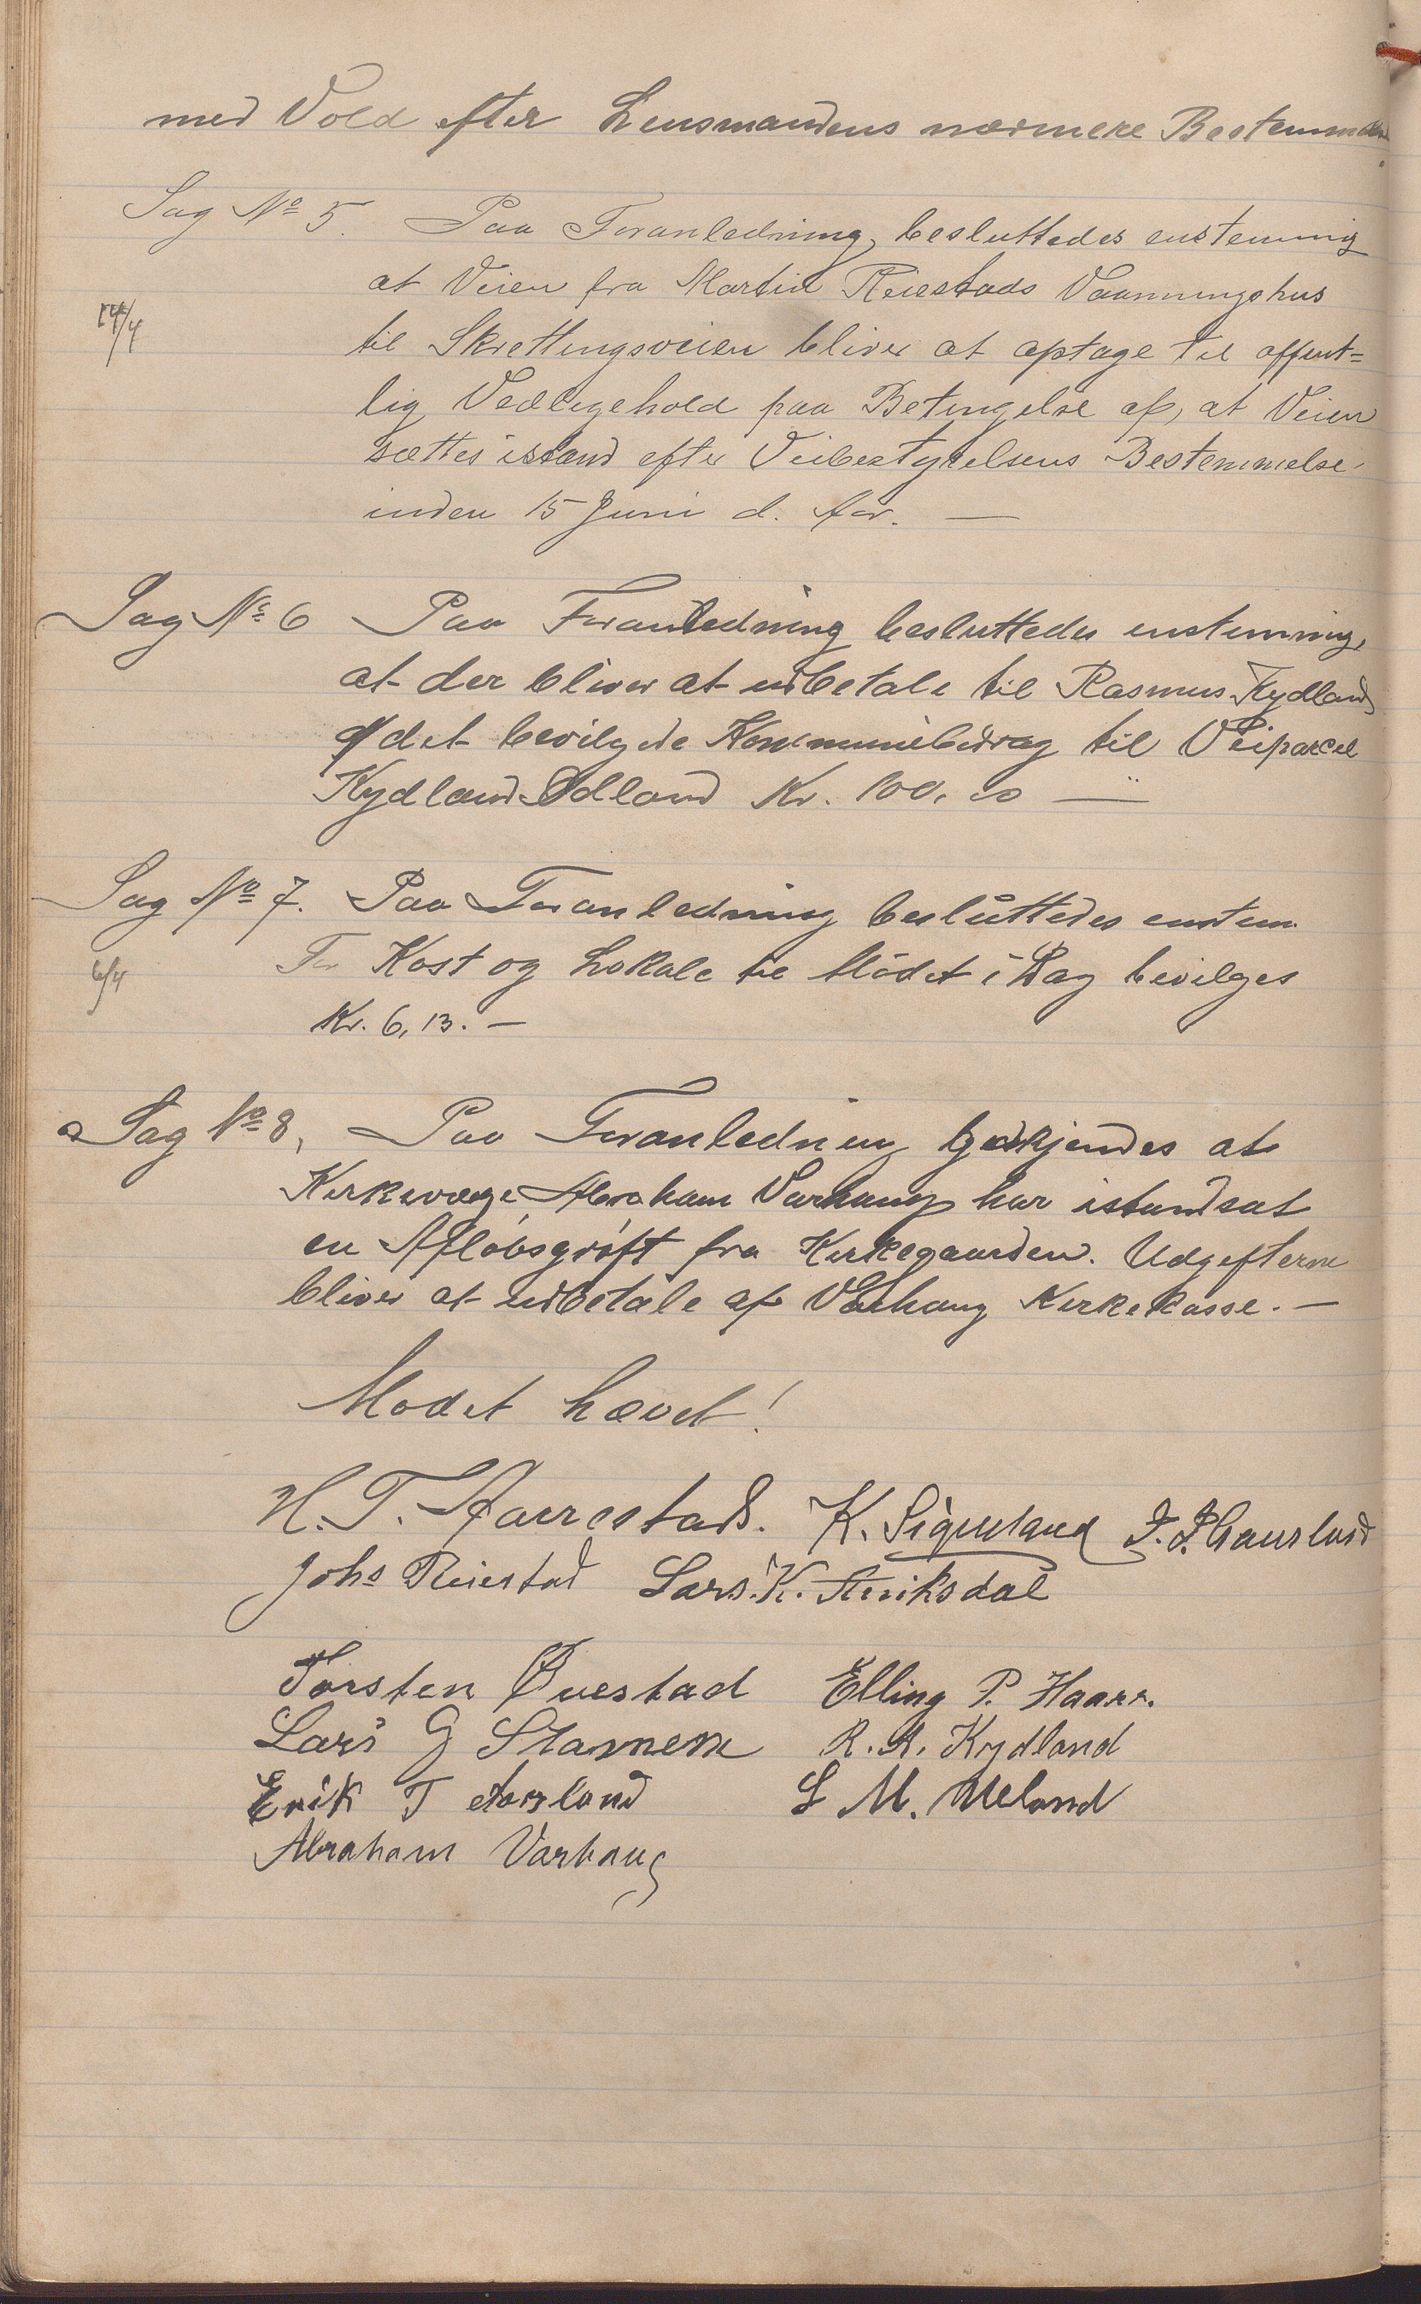 med Vold efter Lensmandens nærmere Bestemmelse.
Sag No 5. Paa Foranledning besluttedes enstemmig
at Veien fra Martin Reiestads Vaaningshus
14/4
til Skrettingsveien bliver at optage til offent=
lig Vedligehold paa Betingelse af, at Veien
sættes istand efter Veibestyrelsens Bestemmelse
inden 15 Juni d. Aar. —
Sag No 6 Paa Foranledning besluttedes enstemmig,
at der bliver at udbetale til Rasmus Kydland
af det bevilgede Kommunebidrag til Veiparcel
Kydland-Odland Kr. 100,00 —
Sag No 7. Paa Foranledning besluttedes enstem.
6/4
For Kost og Lokale til Mödet i Dag bevilges
Kr. 6,13. —
Sag No 8, Paa Foranledning godkjendes at
Kirkeværge Abraham Varhaug har istandsat
en Aflöbsgröft fra Kirkegaarden. Udgifterne
bliver at udbetale af Varhaug Kirkekasse. —
Mödet hævet!
H. T. Aarrestad. K. Sigmland J. J. Gausland
Johs Reiestad Lars. K. Aniksdal
Torsten Øvestad Elling P. Haarr.
Lars G Stamnem R. R. Kydland
Erik T Aarsland L M. Ueland
Abraham Varhaug